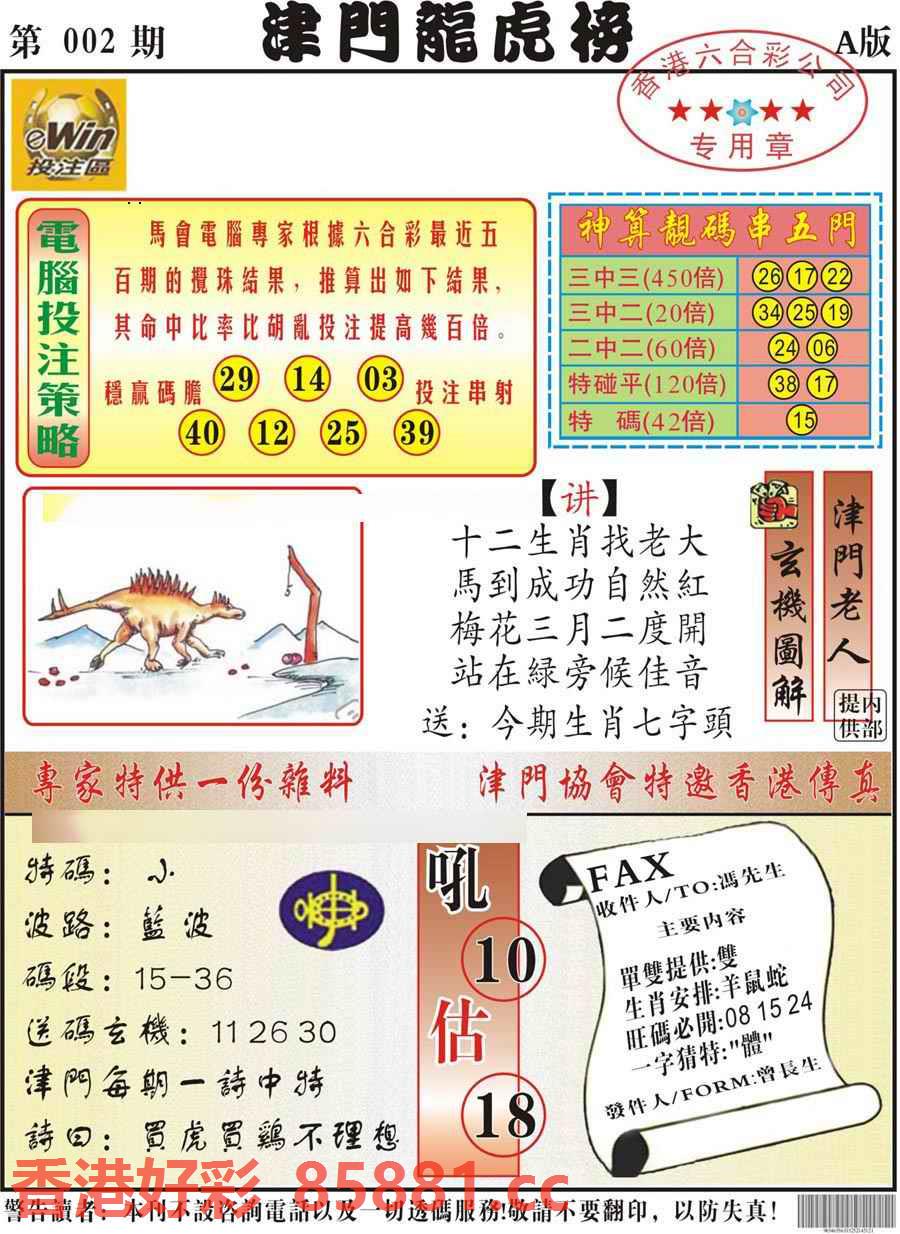 第 002 期
津門龍虎榜
A版
香港六合彩公司
专用章
eWin
投注區
電腦投注策略
馬會電腦專家根據六合彩最近五
百期的攪珠結果，推算出如下結果，
其命中比率比胡亂投注提高幾百倍。
穩贏碼膽 29 14 03 投注串射
40 12 25 39
神算靚碼串五門
三中三(450倍) 26 17 22
三中二(20倍) 34 25 19
二中二(60倍) 24 06
特碰平(120倍) 38 17
特 碼(42倍) 15
【讲】
十二生肖找老大
馬到成功自然紅
梅花三月二度開
站在緑旁候佳音
送：今期生肖七字頭
玄機圖解
津門老人
提供
内部
專家特供一份雜料
津門協會特邀香港傳真
特碼：小
波路：藍波
碼段：15-36
送碼玄機：11 26 30
津門每期一詩中特
詩曰：買虎買鷄不理想
吼
10
估
18
FAX
收件人/TO:馮先生
主要内容
單雙提供:雙
生肖安排:羊鼠蛇
旺碼必開:08 15 24
一字猜特:"體"
發件人/FORM:曾長生
香港好彩 85881.cc
警告讀者：本刊不設咨詢電話以及一切透碼服務!敬請不要翻印，以防失真!